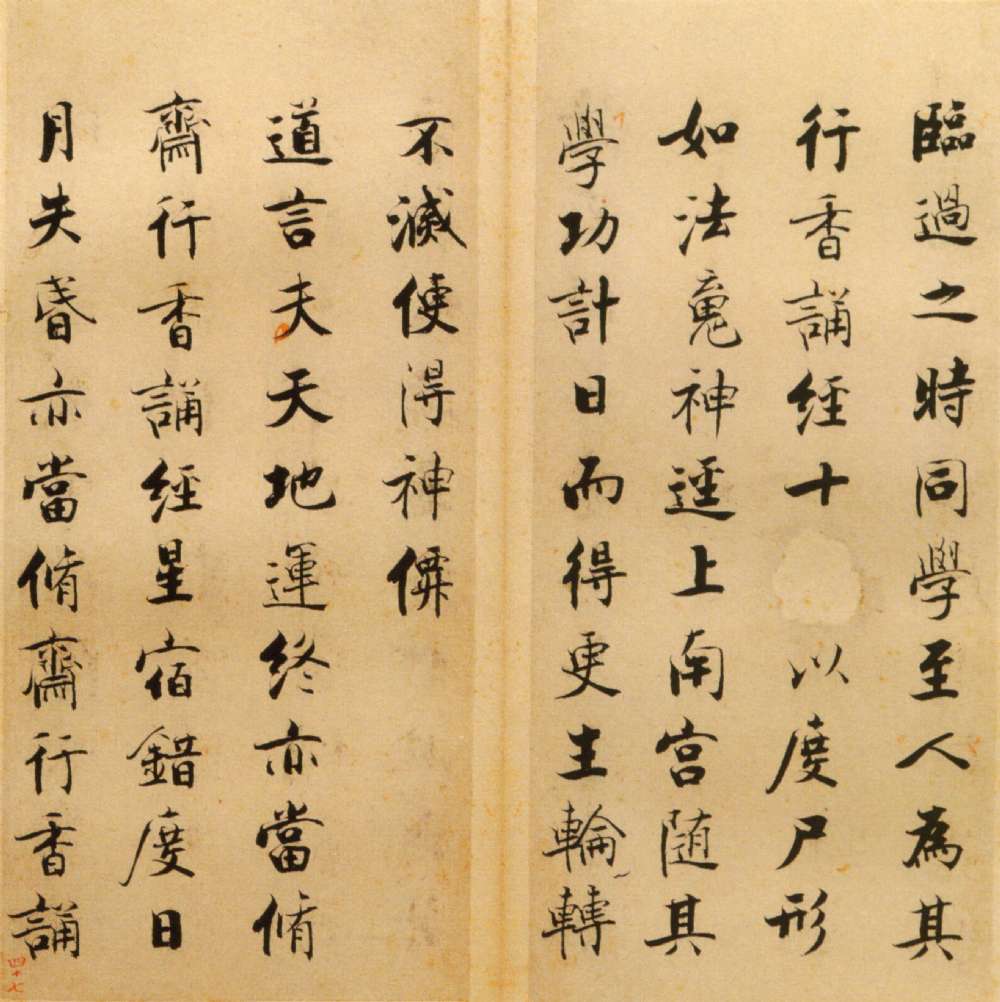 臨過之時同學至人為其
行香誦經十以度尸形
如法䰟神逕上南宮随其
學功計日而得更生輪轉
不滅便得神僊
道言夫天地運終亦當脩
齋行香誦經星宿錯度日
月失昏亦當脩齋行香誦
四十七